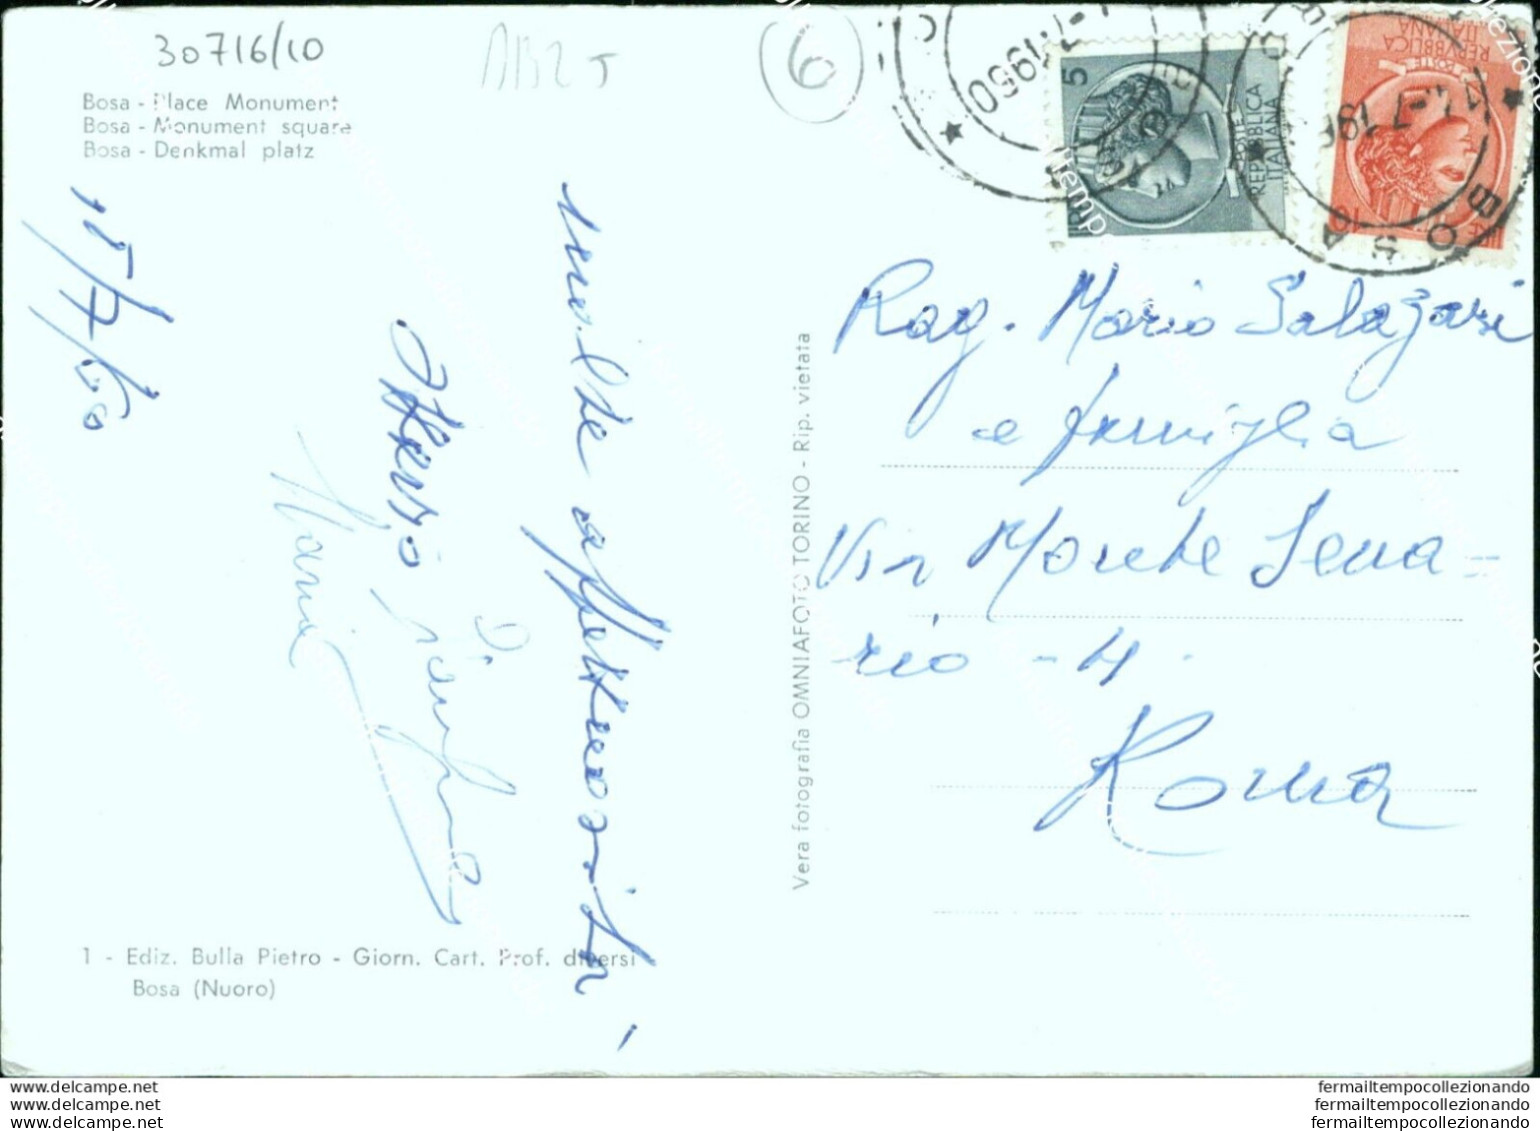 30716/10
AB25
6
Bosa - Place Monument
Bosa - Monument square
Bosa - Denkmal platz
15/7/60
molte affettuosità
Maria
Vera fotografia OMNIAFOTO TORINO - Rip. vietata
1 - Ediz. Bulla Pietro - Giorn. Cart. Prof. diversi
Bosa (Nuoro)
5
POSTE
REPVBBLICA
ITALIANA
POSTE
REPVBBLICA
ITALIANA
BOSA
Rag. Mario Salazari
e famiglia
Via Monte Sena=
rio - 4.
Roma
www.delcampe.net
www.delcampe.net
www.delcampe.net
fermailtempocollezionando
fermailtempocollezionando
fermailtempocollezionando